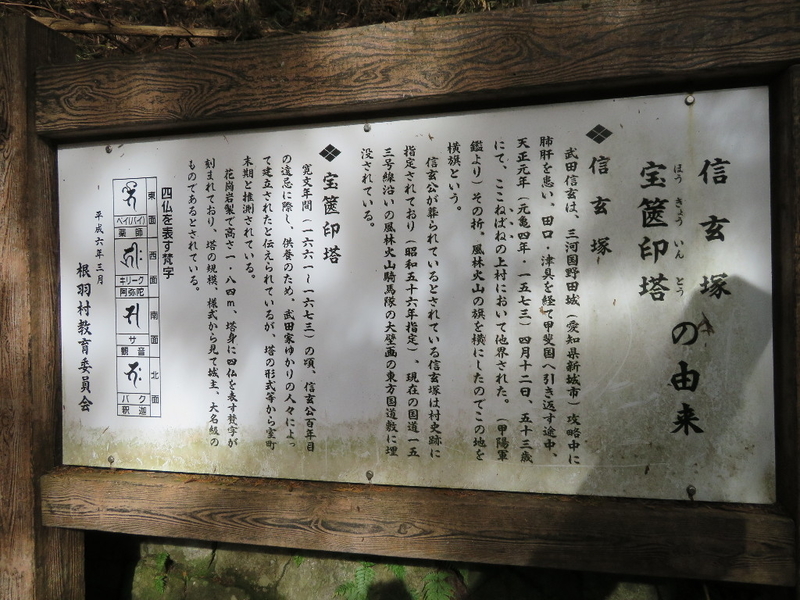 信玄塚
宝篋印塔の由来
ほうきょういんとう
❖信玄塚
武田信玄は、三河国野田城（愛知県新城市）攻略中に
肺肝を患い、田口・津具を経て甲斐国へ引き返す途中、
天正元年（元亀四年・一五七三）四月十二日、五十三歳
にて、ここねばねの上村において他界された。（甲陽軍
鑑より）その折、風林火山の旗を横にしたのでこの地を
横旗という。
信玄公が葬られているとされている信玄塚は村史跡に
指定されており（昭和五十六年指定）、現在の国道一五
三号線沿いの風林火山騎馬隊の大壁画の東方国道敷に埋
没されている。
❖宝篋印塔
寛文年間（一六六一～一六七三）の頃、信玄公百年目
の遠忌に際し、供養のため、武田家ゆかりの人々によっ
て建立されたと伝えられているが、塔の形式等から室町
末期と推測されている。
花崗岩製で高さ一・八四m、塔身に四仏を表す梵字が
刻まれており、塔の規模、様式から見て城主、大名級の
ものであるとされている。
四仏を表す梵字
東面
ベイ(バイ)
薬師
西面
キリーク
阿弥陀
南面
サ
観音
北面
バク
釈迦
平成六年三月
根羽村教育委員会